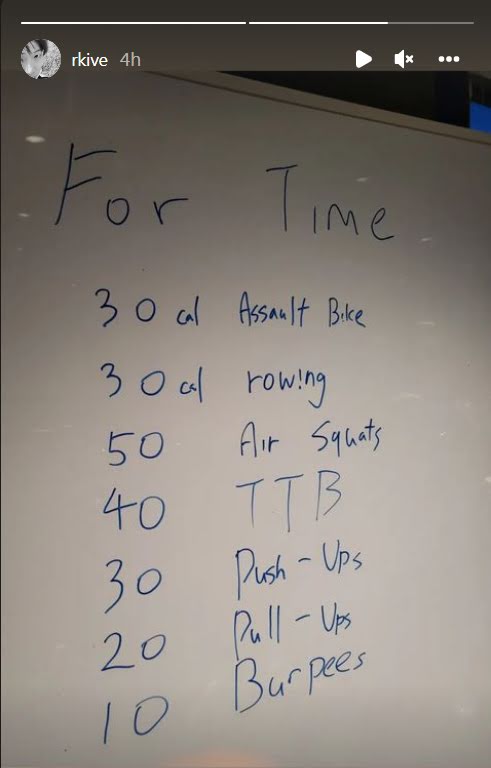 rkive 4h
For Time
30 cal Assault Bike
30 cal rowing
50 Air Squats
40 TTB
30 Push-Ups
20 Pull-Ups
10 Burpees